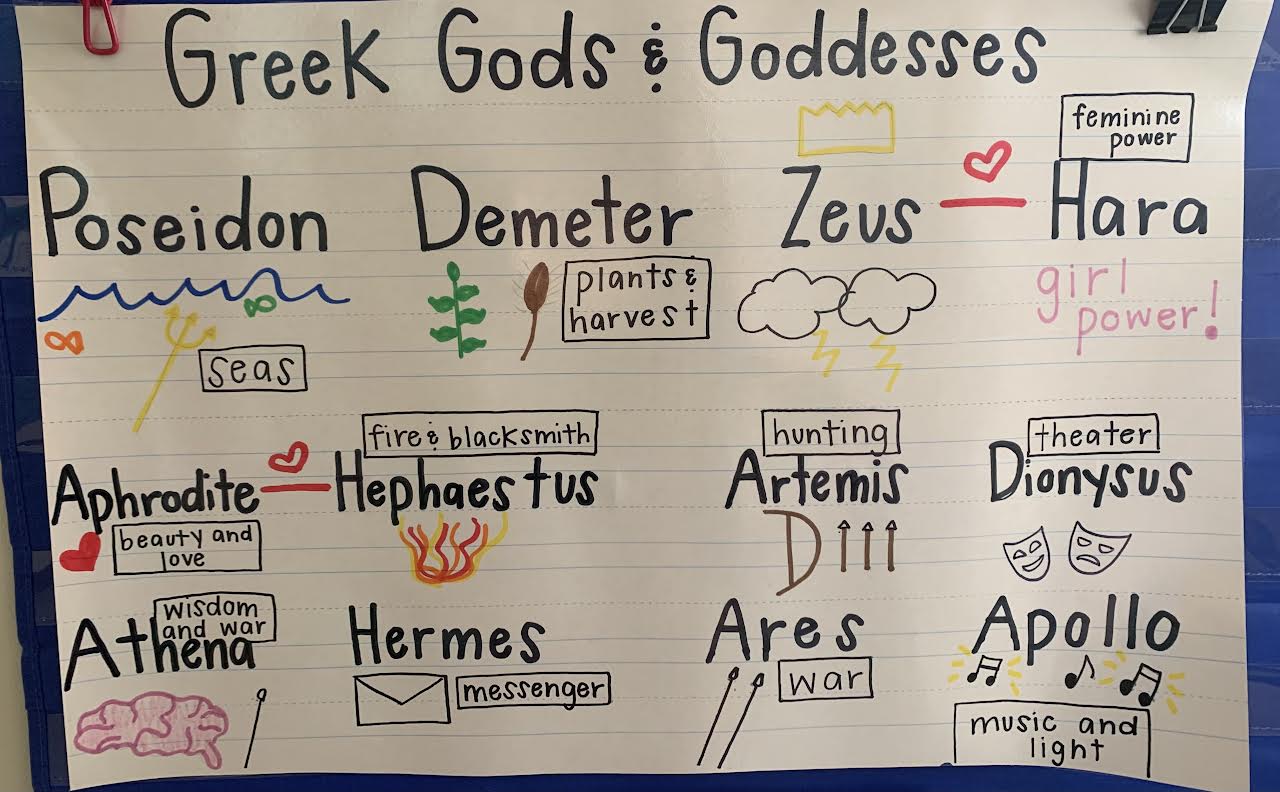 Greek Gods & Goddesses
feminine
power
Poseidon Demeter Zeus Hara
plants &
harvest
girl
power!
seas
fire & blacksmith
hunting
theater
Aphrodite Hephaestus Artemis Dionysus
beauty and
love
wisdom
and war
Athena Hermes Ares Apollo
messenger
war
music and
light